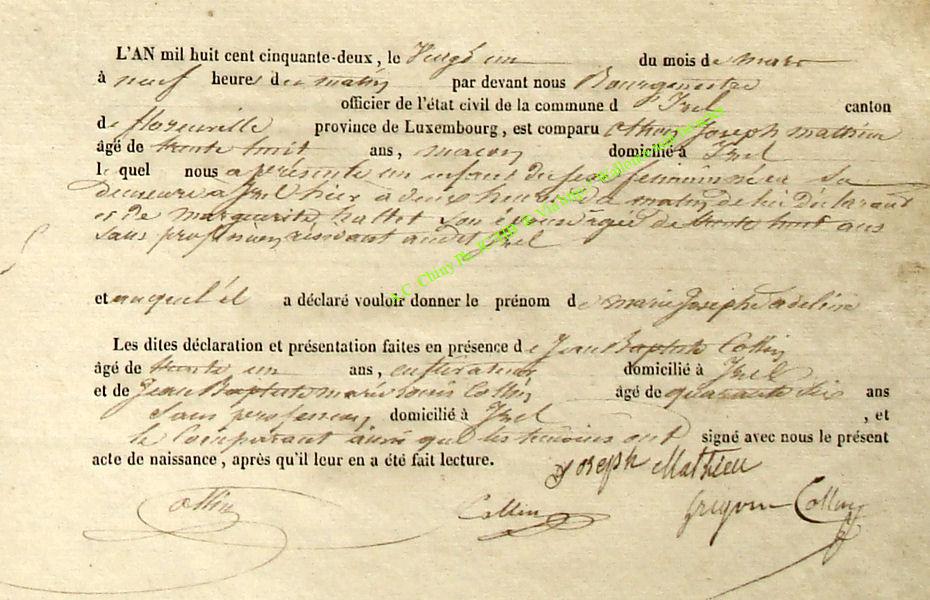 L'AN mil huit cent cinquante-deux, le Vingt un du mois de mars
à neuf heures du matin par devant nous Bourgmestre
officier de l'état civil de la commune d'Izel canton
de florenville province de Luxembourg, est comparu Joseph mathieu
âgé de trente huit ans, maçon domicilié à Izel
lequel nous a présenté un enfant du sexe feminin né en sa
demeure à Izel hier à deux heures du matin de lui déclarant
et de marguerite son épouse agée de trente huit ans
sans profession résidant audit Izel
et auquel il a déclaré vouloir donner le prénom de marie Josephe adeline
Les dites déclaration et présentation faites en présence de Jean Baptiste Collin
âgé de trente un ans, cultivateur domicilié à Izel
et de Jean Baptiste marie Louis Collin âgé de quarante six ans
sans profession, domicilié à Izel, et
le Comparant ainsi que les témoins ont signé avec nous le présent
acte de naissance, après qu'il leur en a été fait lecture.
Joseph Mathieu
Collin Collin Collin